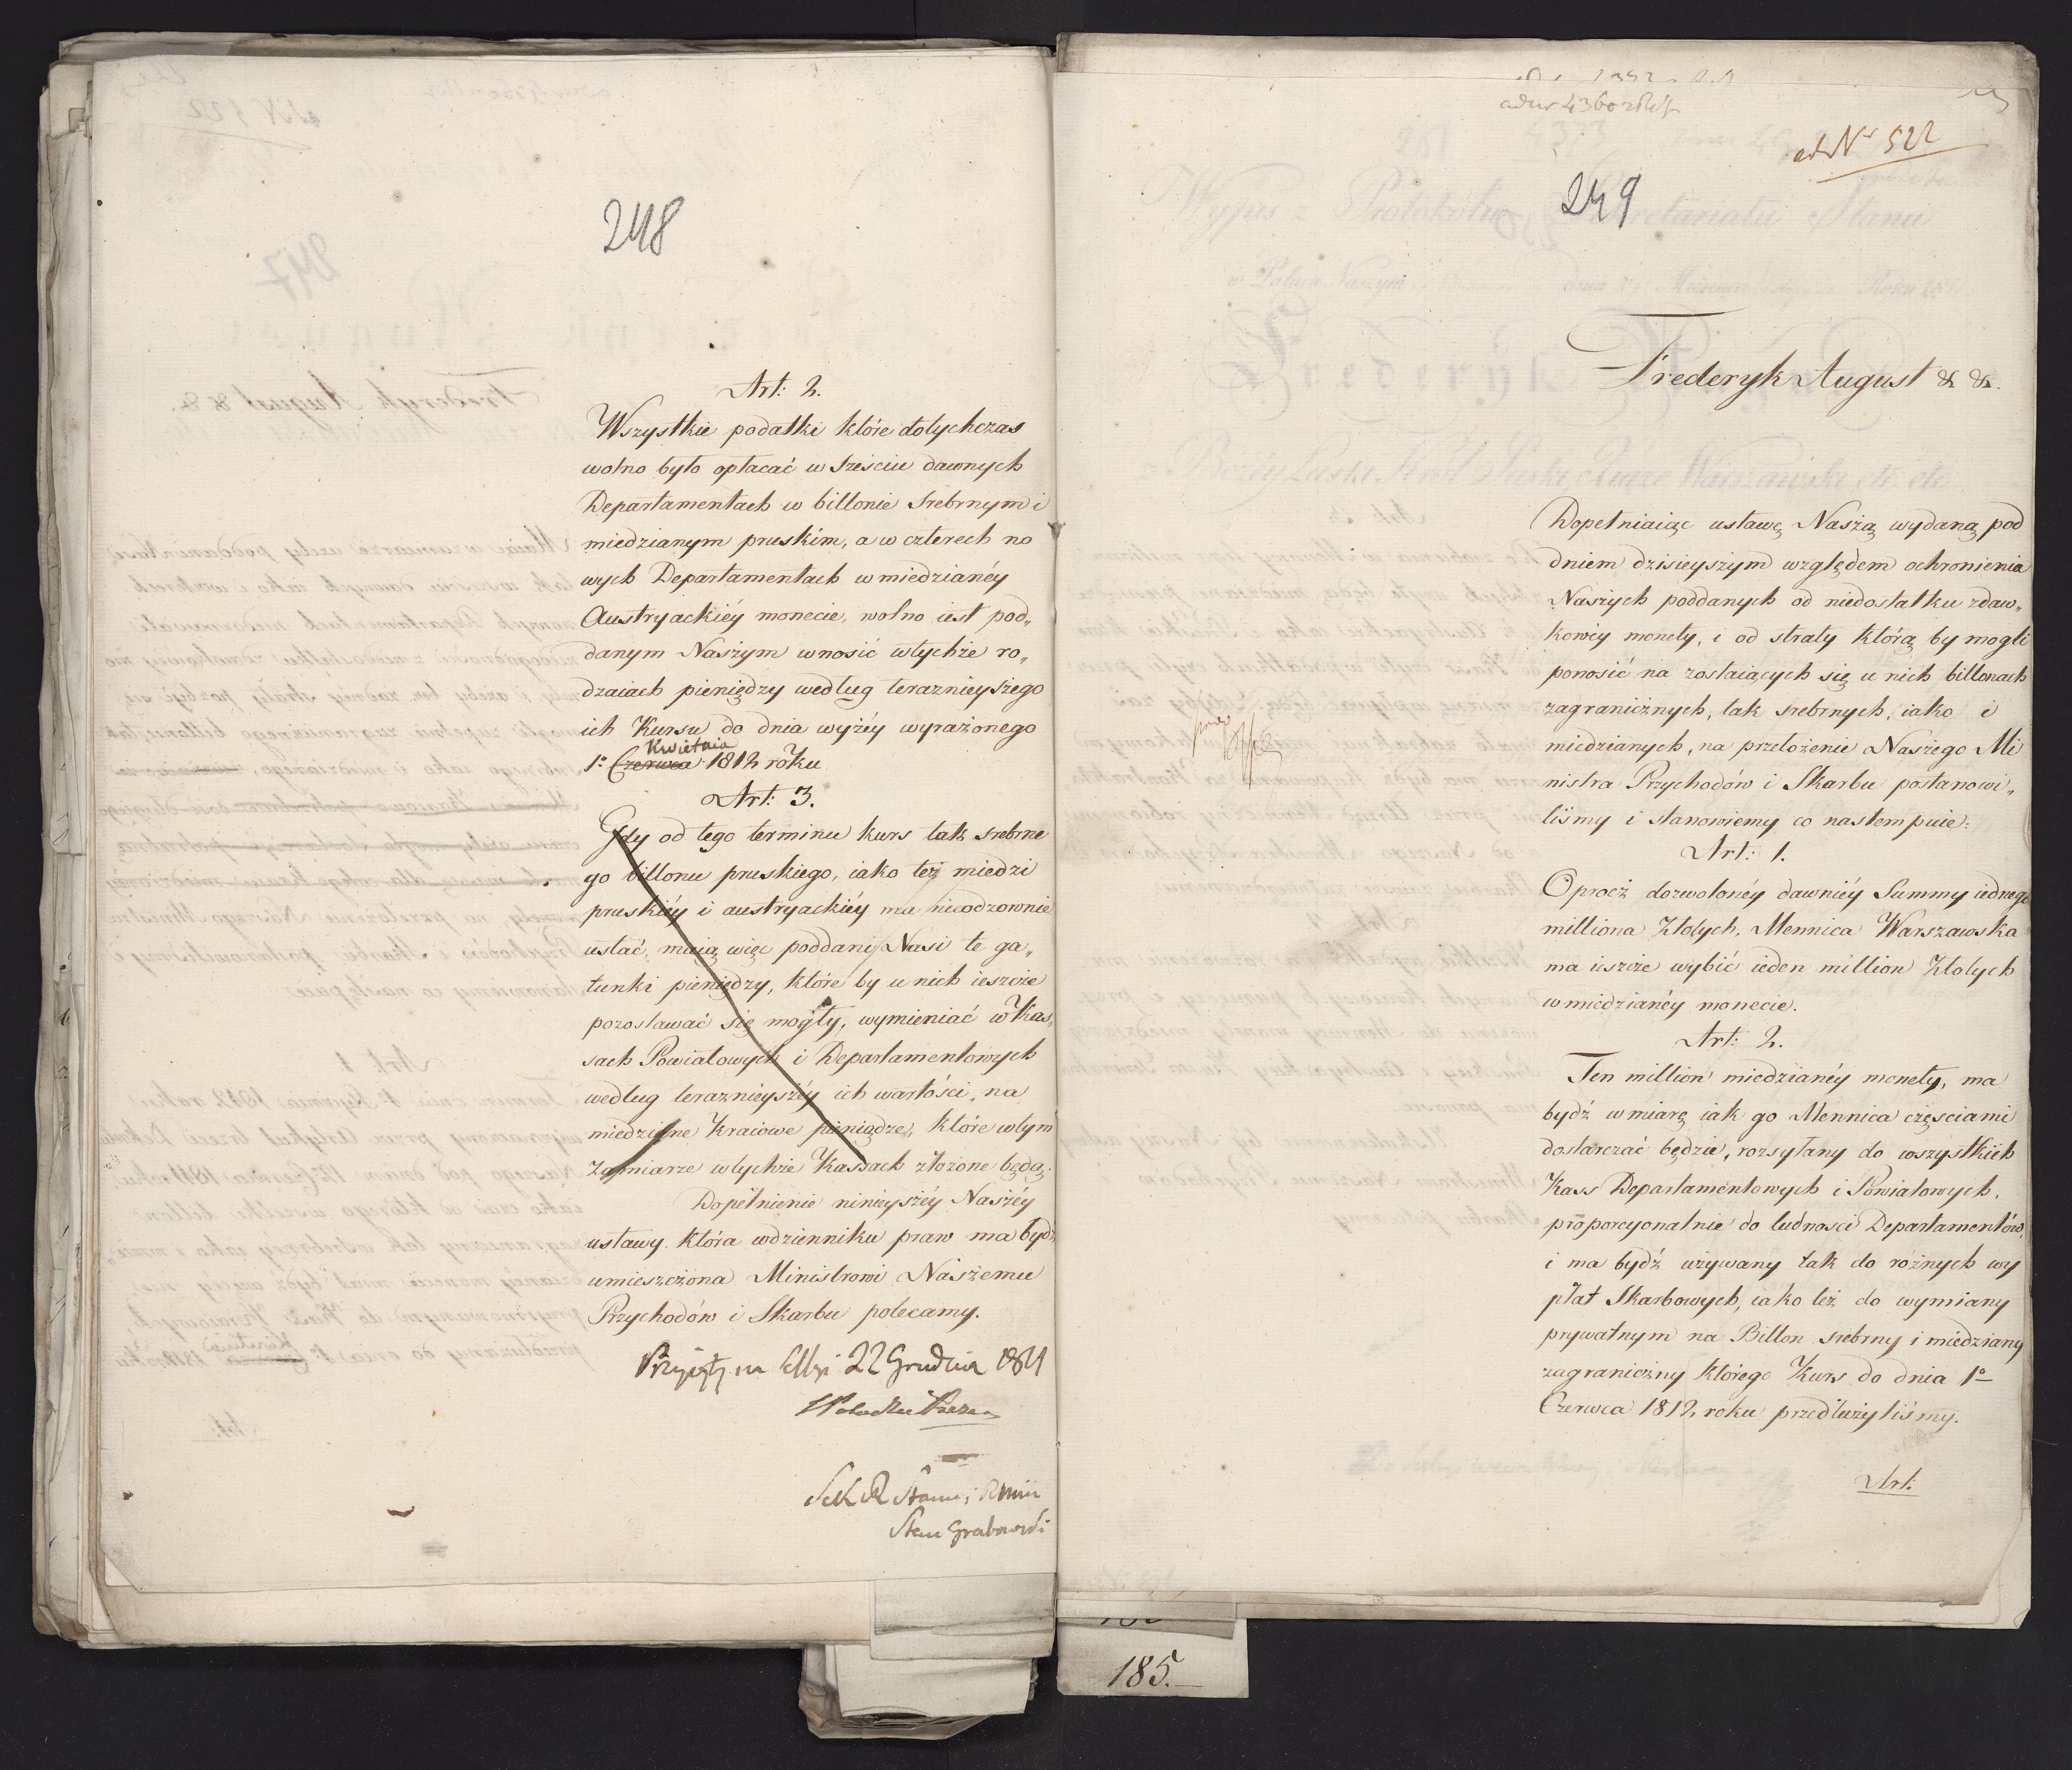 248
Art: 2.
Wszystkie podatki które dotychczas
wolno było opłacać w sześciu dawnych
Departamentach w billonie srebrnym i
miedzianym pruskim, a w czterech no
wych Departamentach w miedzianéy
Austryackiéy monecie, wolno iest pod„
danym Naszym wnosić w tychże ro„
dzaiach pieniędzy według teraznieyszego
ich Kursu do dnia wyżéy wyrażonego
Kwietnia
1º Czerwca 1812 roku
Art: 3.
Gdy od tego terminu kurs tak srebrne
go billonu pruskiego, iako też miedzi
pruskiéy i austryackiéy ma nieodzownie
ustać, maią więc poddani Nasi te ga„
tunki pieniędzy, które by u nich ieszcze
pozostawać się mogły, wymieniać w Kas„
sach Powiatowych i Departamentowych
według teraznieyszéy ich wartości, na
miedziane Kraiowe pieniądze, które w tym
zamiarze w tychże Kassach złożone będą.
Dopełnienie ninieyszéy Naszéy
ustawy która w dzienniku praw ma bydź
umieszczona Ministrowi Naszemu
Przychodów i Skarbu polecamy.
Przyięty na Sessyi 22 Grudnia 1811
Sek R Stanu i RMin
Stan Grabowski
ad Nr 522
249
Frederyk August & &.
Dopełniaiąc ustawę Naszą wydaną pod
dniem dzisieyszym względem ochronienia
Naszych poddanych od niedostatku zdaw„
kowéy monety, i od straty którą by mogli
ponosić na zostaiących się u nich billonach
zagranicznych, tak srebrnych, iako i
miedzianych, na przełożenie Naszego Mi
nistra Przychodów i Skarbu postanowi„
liśmy i stanowiemy co nastempuie:
Art: 1.
Oprócz dozwolonéy dawniéy Summy iednego
milliona Złotych, Mennica Warszawska
ma ieszcze wybić ieden million Złotych
w miedzianéy monecie.
Art: 2.
Ten million miedzianéy monety, ma
bydź w miarę iak go Mennica częsciami
dostarczać będzie, rozsyłany do wszystkich
Kass Departamentowych i Powiatowych,
proporcyonalnie do ludności Departamentów,
i ma bydź używany tak do róźnych wy
płat Skarbowych, iako też do wymiany
prywatnym na Billon srebrny i miedziany
zagraniczny którego Kurs do dnia 1º
Czerwca 1812 roku przedłużyliśmy.
Art:
185.